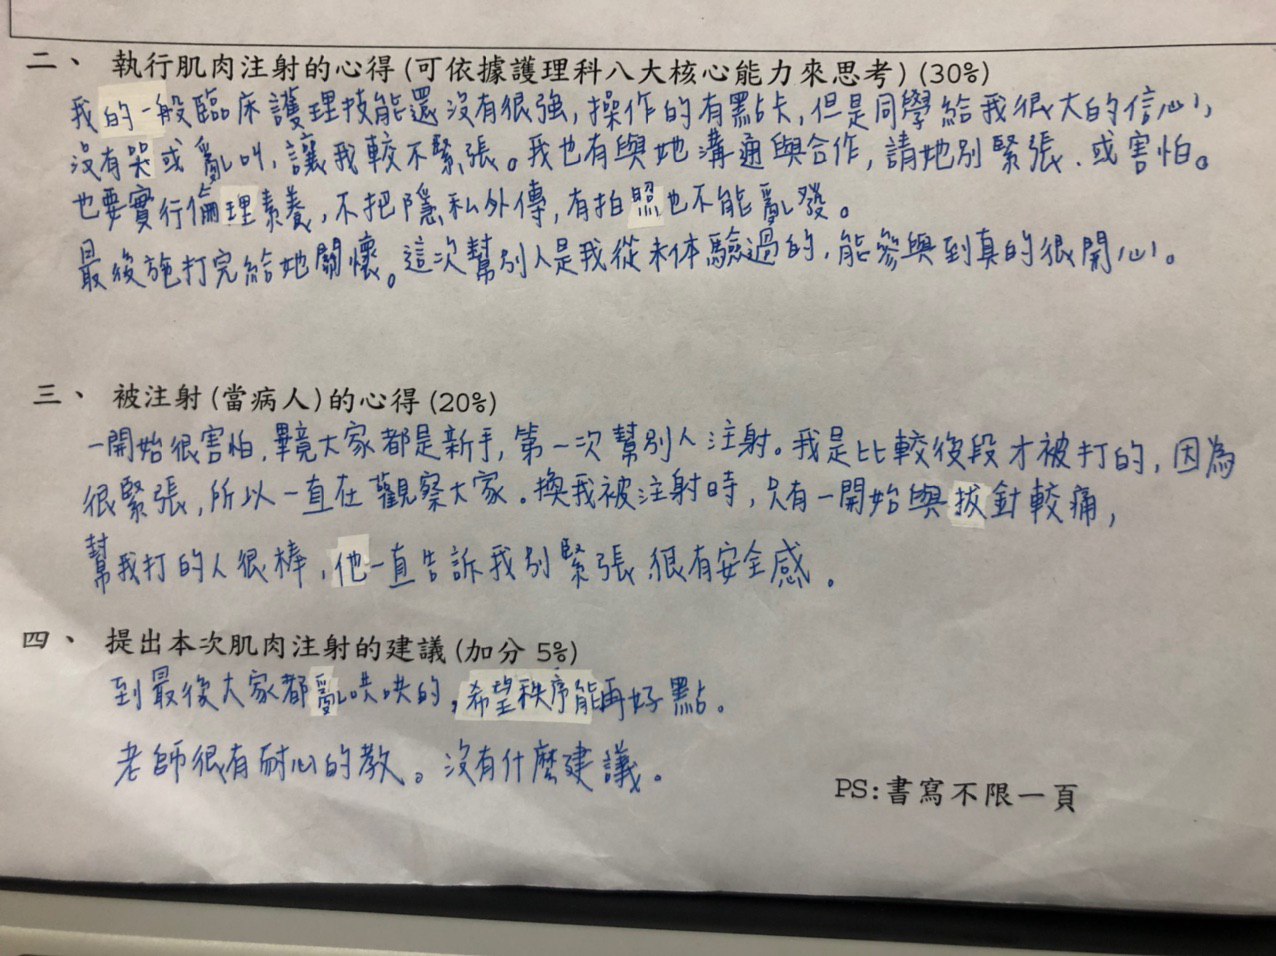 二、 執行肌肉注射的心得(可依據護理科八大核心能力來思考)(30%)
我的一般臨床護理技能還沒有很強,操作的有點卡,但是同學給我很大的信心,
沒有哭或亂叫,讓我較不緊張。我也有與她溝通與合作,請她別緊張、或害怕。
也要實行倫理素養,不把隱私外傳,有拍照也不能亂發。
最後施打完給她關懷。這次幫別人是我從未体驗過的,能參與到真的很開心。
三、 被注射(當病人)的心得(20%)
一開始很害怕,畢竟大家都是新手,第一次幫別人注射。我是比較後段才被打的,因為
很緊張,所以一直在觀察大家。換我被注射時,只有一開始與拔針較痛,
幫我打的人很棒,他一直告訴我別緊張,很有安全感。
四、 提出本次肌肉注射的建議(加分 5%)
到最後大家都亂哄哄的,希望秩序能再好點。
老師很有耐心的教。沒有什麼建議。
PS:書寫不限一頁